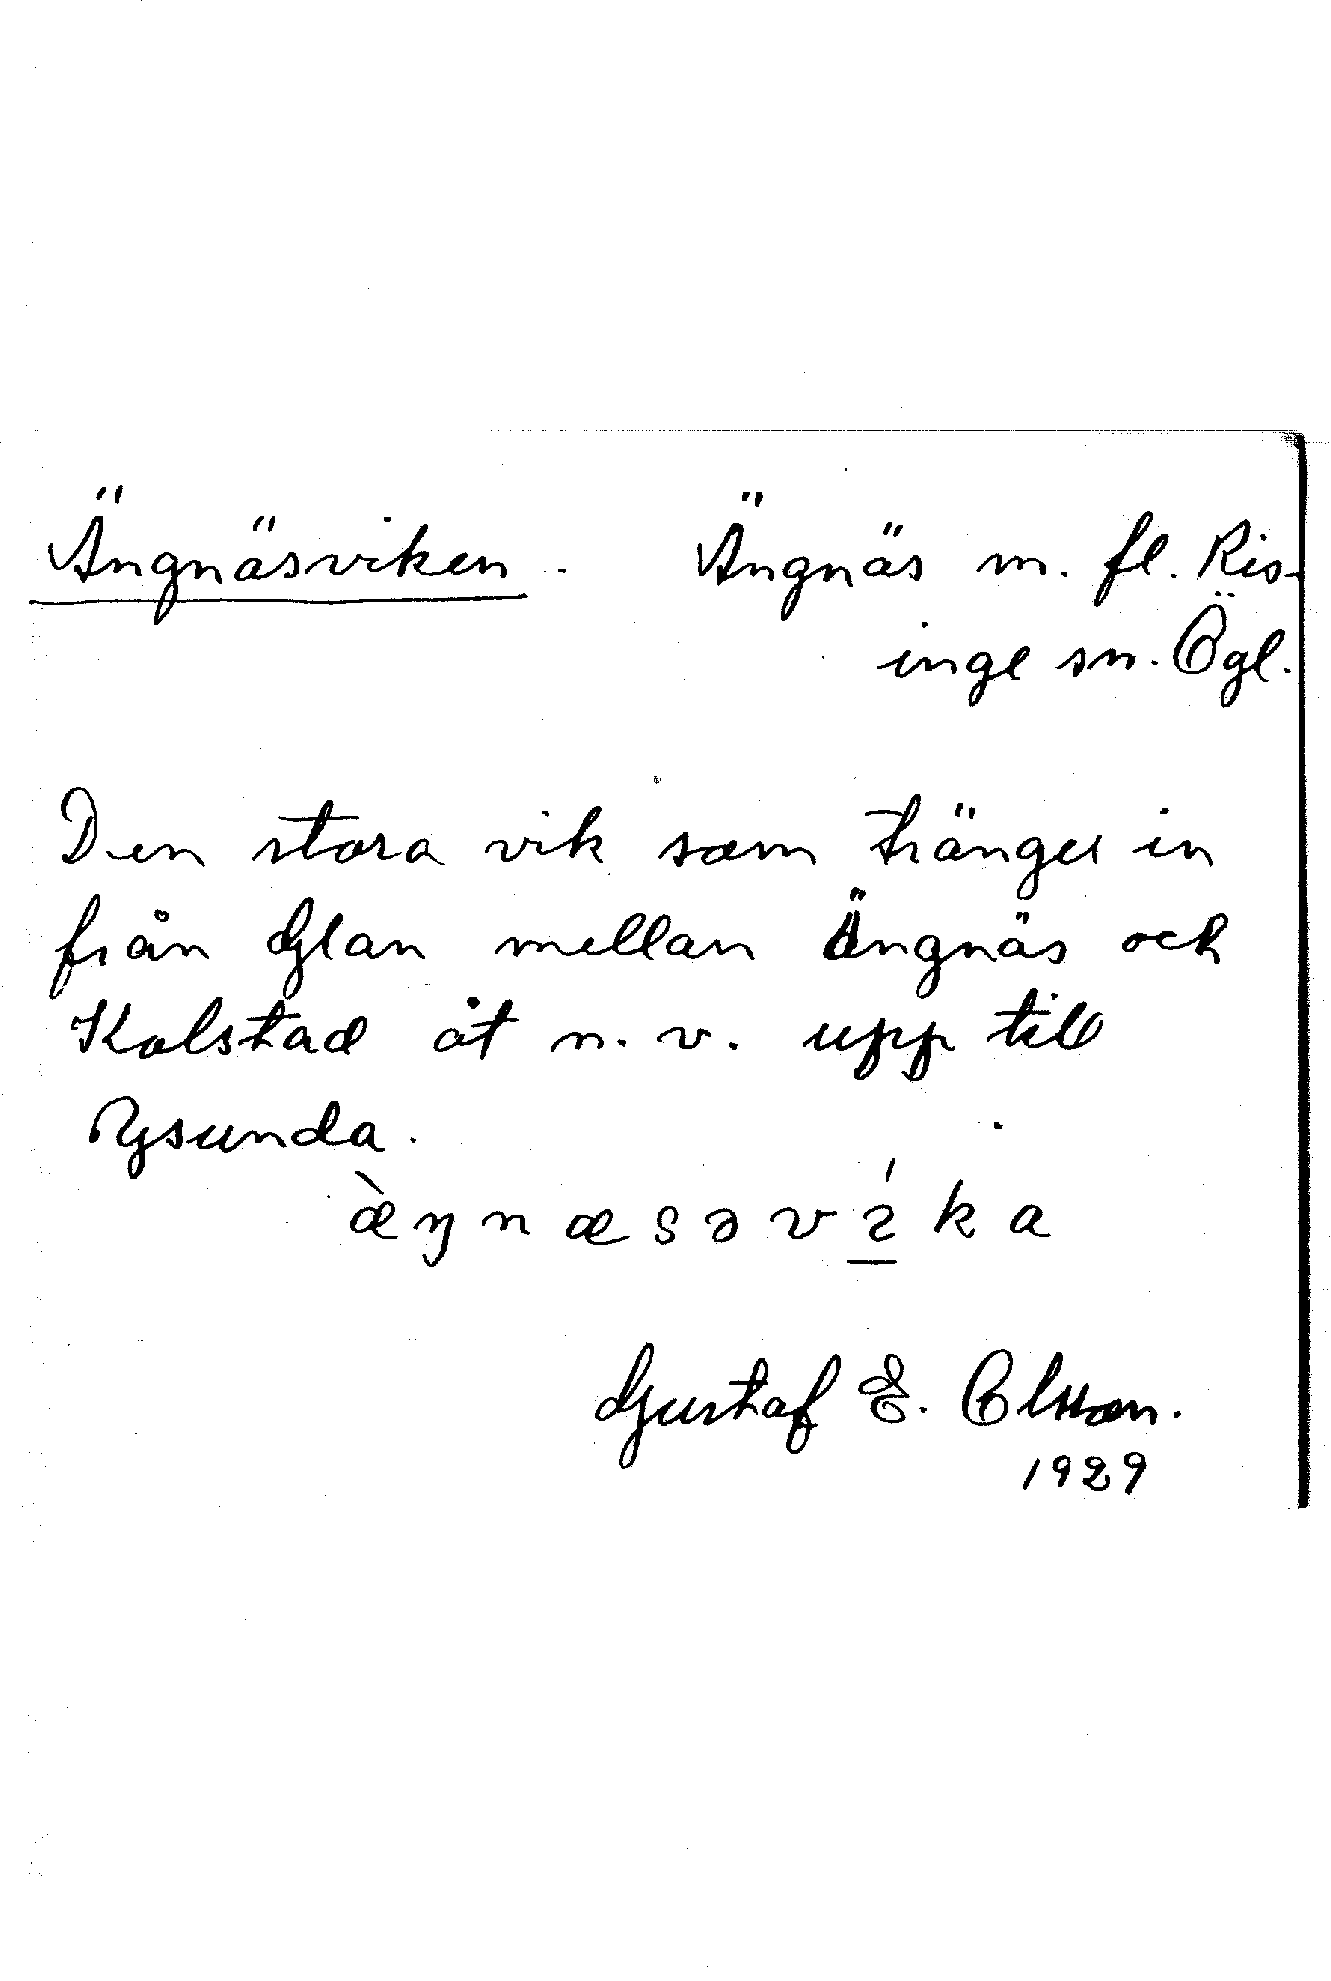 Ängnäsviken. Ängnäs m. fl. Ris-
inge sn. Ögl.
Den stora vik som tränger in
från Glan mellan Ängnäs och
Kolstad åt n. v. upp till
Ysunda.
æ̀ŋnæsəvíka
Gustaf E. Olsson.
1929